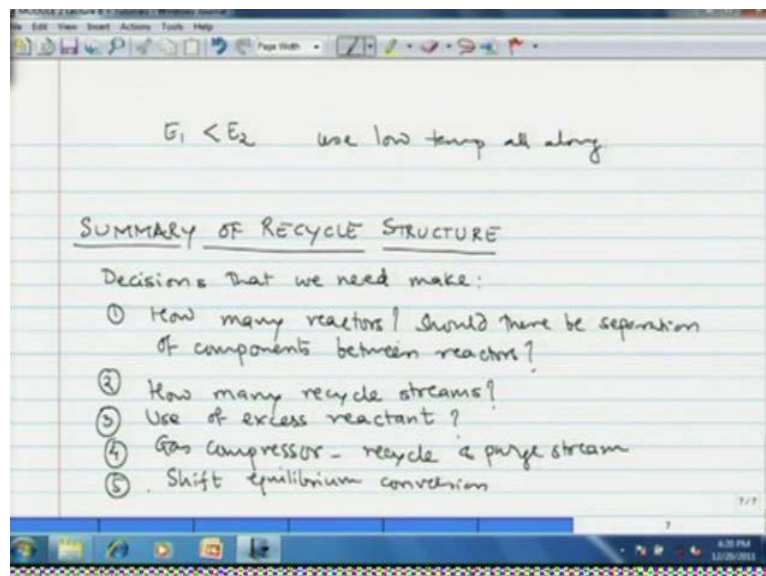 MODULE 2 Lecture 8 + Tutorials - Windows Journal
File Edit View Insert Actions Tools Help
Page Width
E1 < E2 use low temp all along
SUMMARY OF RECYCLE STRUCTURE
Decisions that we need make:
① How many reactors? Should there be separation
of components between reactors?
② How many recycle streams?
③ Use of excess reactant?
④ Gas compressor - recycle & purge stream
⑤ Shift equilibrium conversion
7/7
7
4:20 PM
12/20/2011